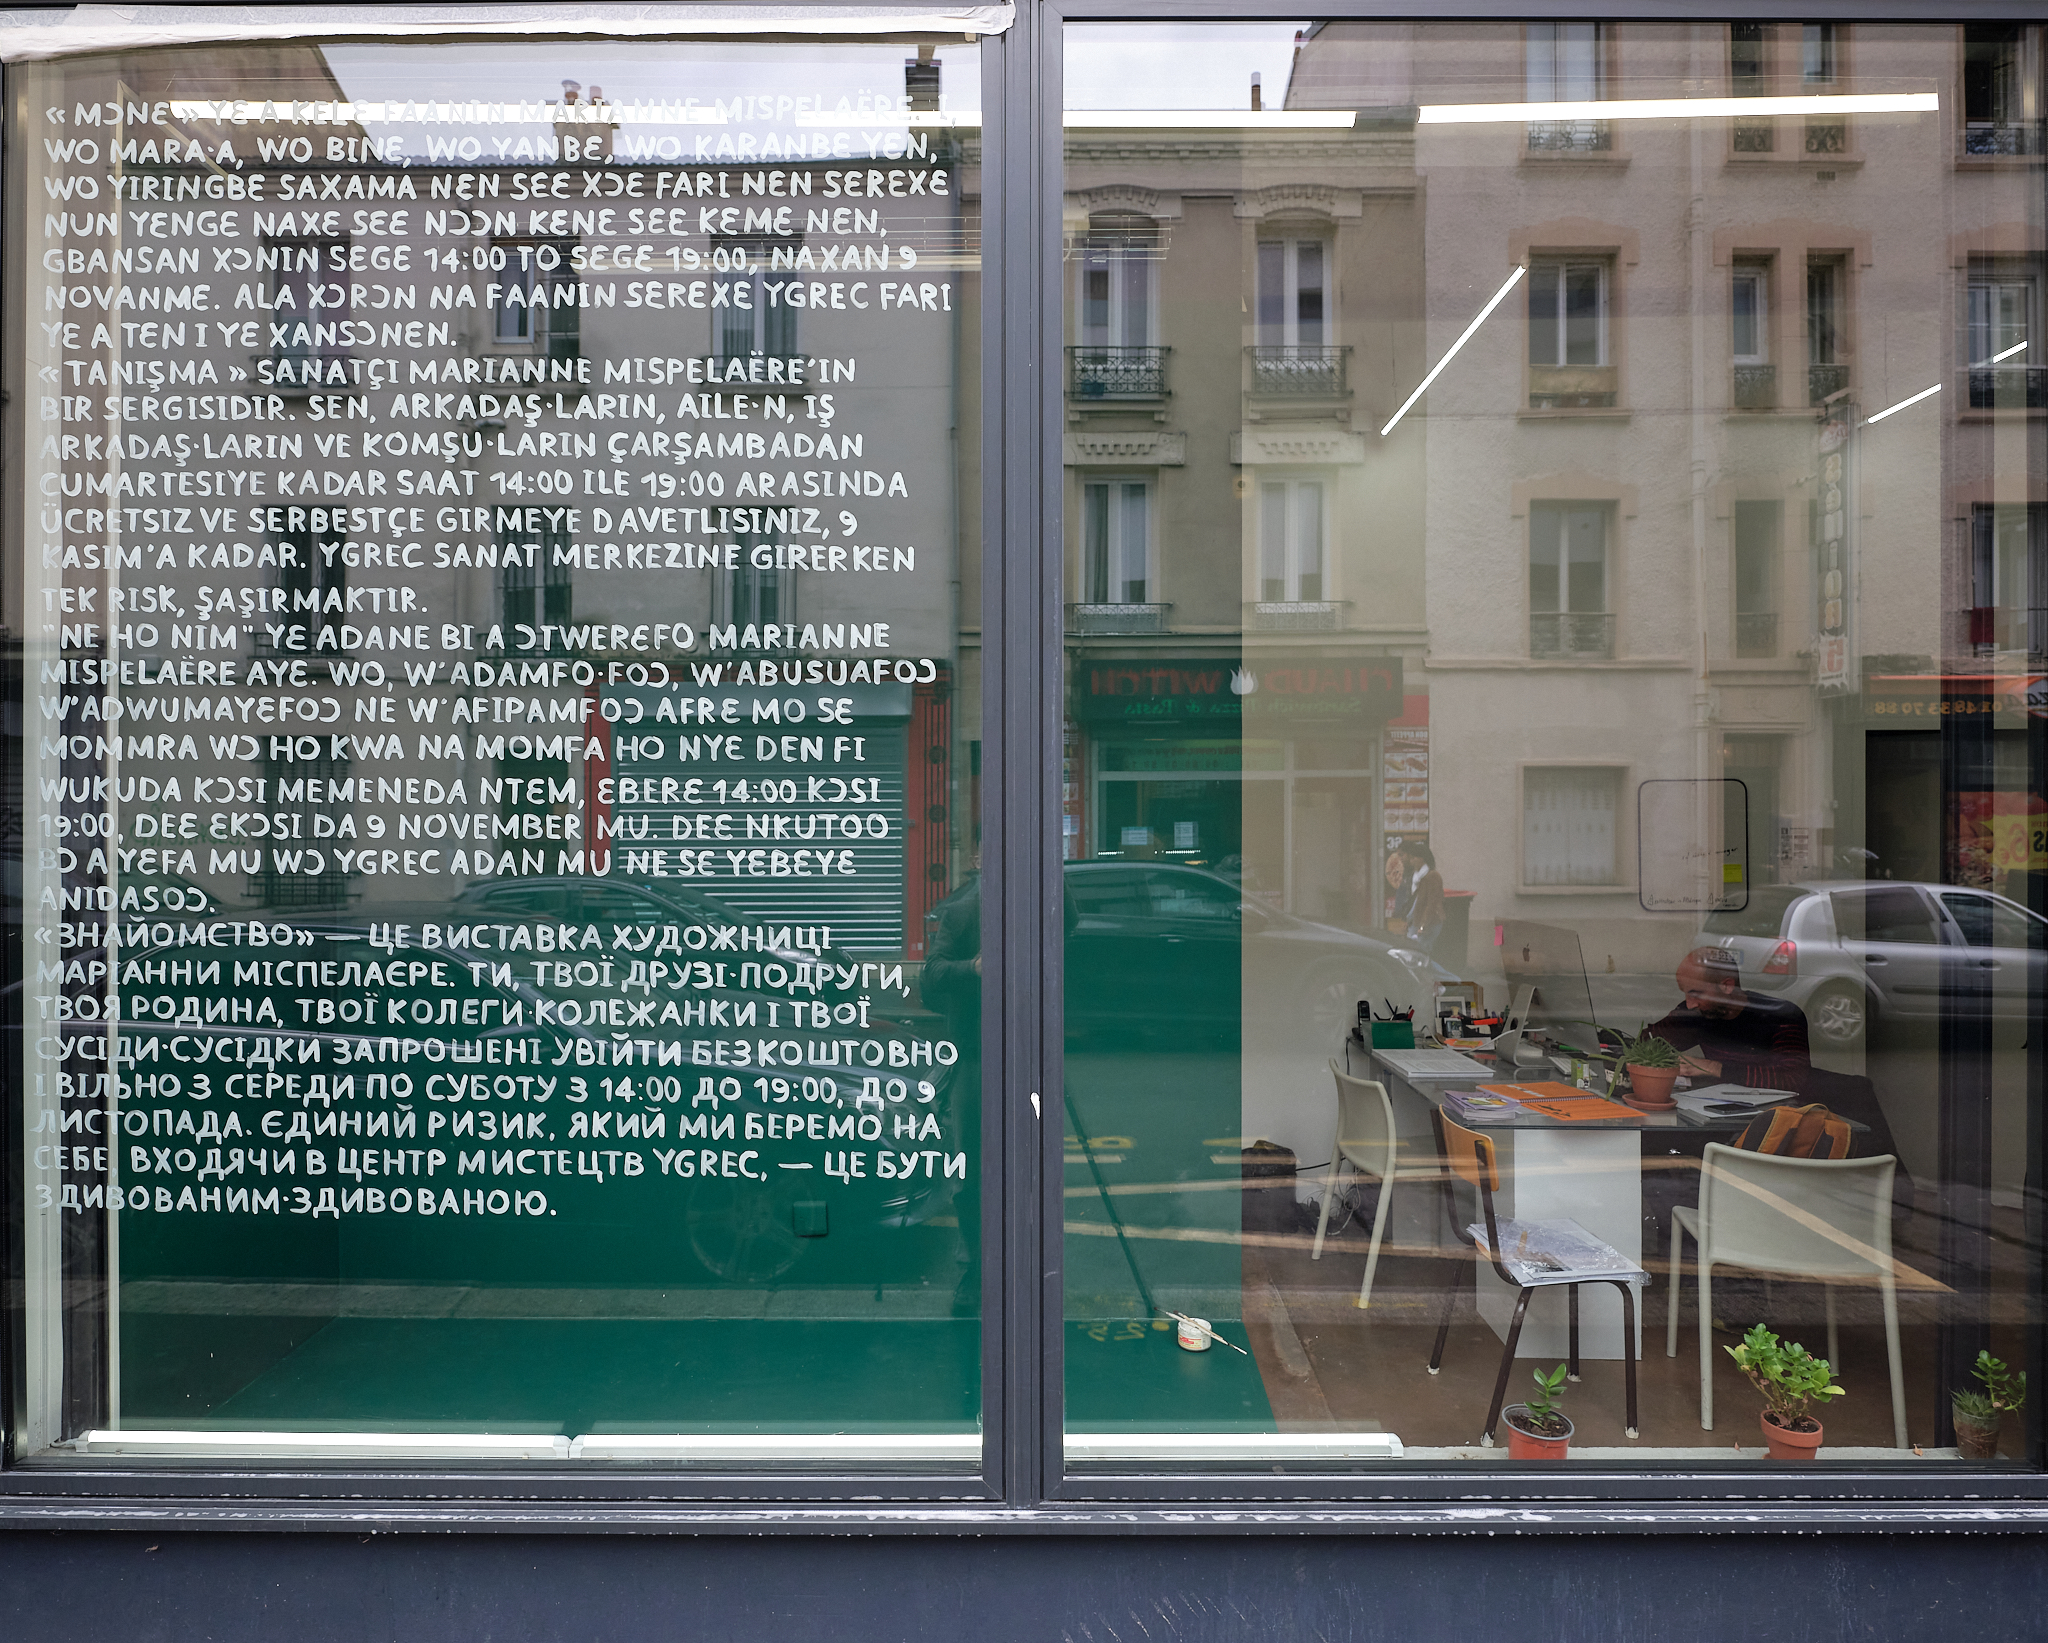 « MƆNƐ » YƐ A KELƐ FAANIN MARIANNE MISPELAËRE. I,
WO MARA·A, WO BINƐ, WO YANBƐ, WO KARANBƐ YƐN,
WO YIRINGBƐ SAXAMA NƐN SƐƐ XƆƐ FARI NƐN SƐRƐXƐ
NUN YƐNGƐ NAXƐ SƐƐ NƆƆN KƐNƐ SƐƐ KƐMƐ NƐN,
GBANSAN XƆNIN SƐGƐ 14:00 TO SƐGƐ 19:00, NAXAN 9
NOVANMƐ. ALA XƆRƆN NA FAANIN SƐRƐXƐ YGREC FARI
YƐ A TƐN I YƐ XANSƆNƐN.
« TANIŞMA » SANATÇI MARIANNE MISPELAËRE'IN
BIR SERGISIDIR. SEN, ARKADAŞ·LARIN, AILE·N, IŞ
ARKADAŞ·LARIN VE KOMŞU·LARIN ÇARŞAMBADAN
CUMARTESIYE KADAR SAAT 14:00 ILE 19:00 ARASINDA
ÜCRETSIZ VE SERBESTÇE GIRMEYE DAVETLISINIZ, 9
KASIM'A KADAR. YGREC SANAT MERKEZINE GIRERKEN
TEK RISK, ŞAŞIRMAKTIR.
"NE HO NIM" YƐ ADANE BI A ƆTWERƐFO MARIANNE
MISPELAËRE AYƐ. WO, W'ADAMFO·FOƆ, W'ABUSUAFOƆ
W'ADWUMAYƐFOƆ NE W'AFIPAMFOƆ AFRƐ MO SƐ
MOMMRA WƆ HO KWA NA MOMFA HO NYƐ DEN FI
WUKUDA KƆSI MEMENEDA NTƐM, ƐBERƐ 14:00 KƆSI
19:00, DEƐ ƐKƆSI DA 9 NOVEMBER MU. DEƐ NKUTOO
BƆ A YƐFA MU WƆ YGREC ADAN MU NE SƐ YƐBƐYƐ
ANIDASOƆ.
«ЗНАЙОМСТВО» — ЦЕ ВИСТАВКА ХУДОЖНИЦІ
МАРІАННИ МІСПЕЛАЄРЕ. ТИ, ТВОЇ ДРУЗІ·ПОДРУГИ,
ТВОЯ РОДИНА, ТВОЇ КОЛЕГИ·КОЛЕЖАНКИ І ТВОЇ
СУСІДИ·СУСІДКИ ЗАПРОШЕНІ УВІЙТИ БЕЗКОШТОВНО
І ВІЛЬНО З СЕРЕДИ ПО СУБОТУ З 14:00 ДО 19:00, ДО 9
ЛИСТОПАДА. ЄДИНИЙ РИЗИК, ЯКИЙ МИ БЕРЕМО НА
СЕБЕ, ВХОДЯЧИ В ЦЕНТР МИСТЕЦТВ YGREC, — ЦЕ БУТИ
ЗДИВОВАНИМ·ЗДИВОВАНОЮ.
CHAUD WITCH
Sandwich Pizza & Pasta